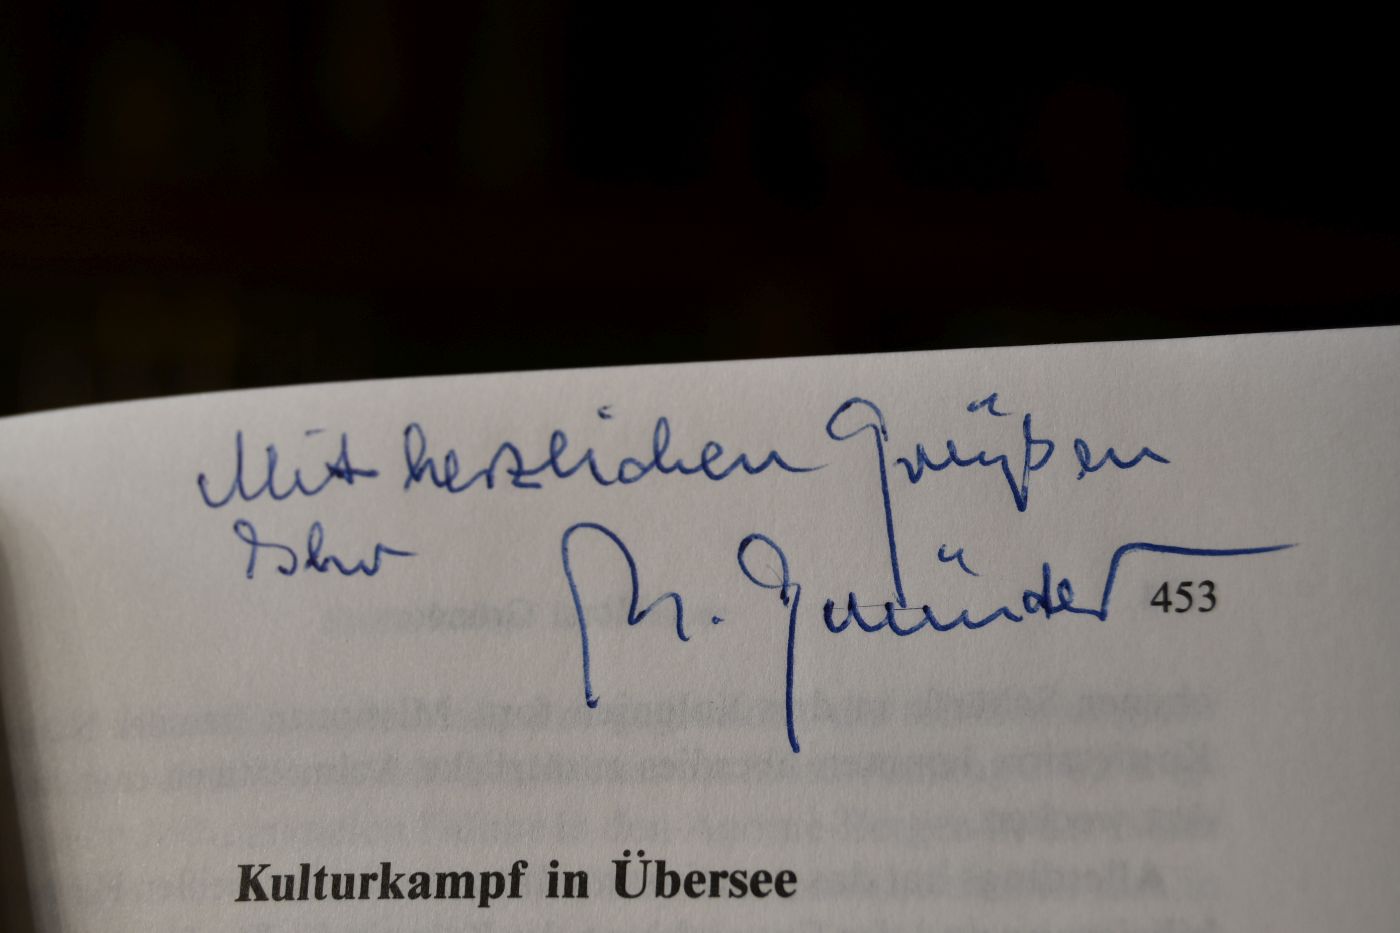 Mit herzlichen Grüßen
Ihr H. Gründer
453
Kulturkampf in Übersee